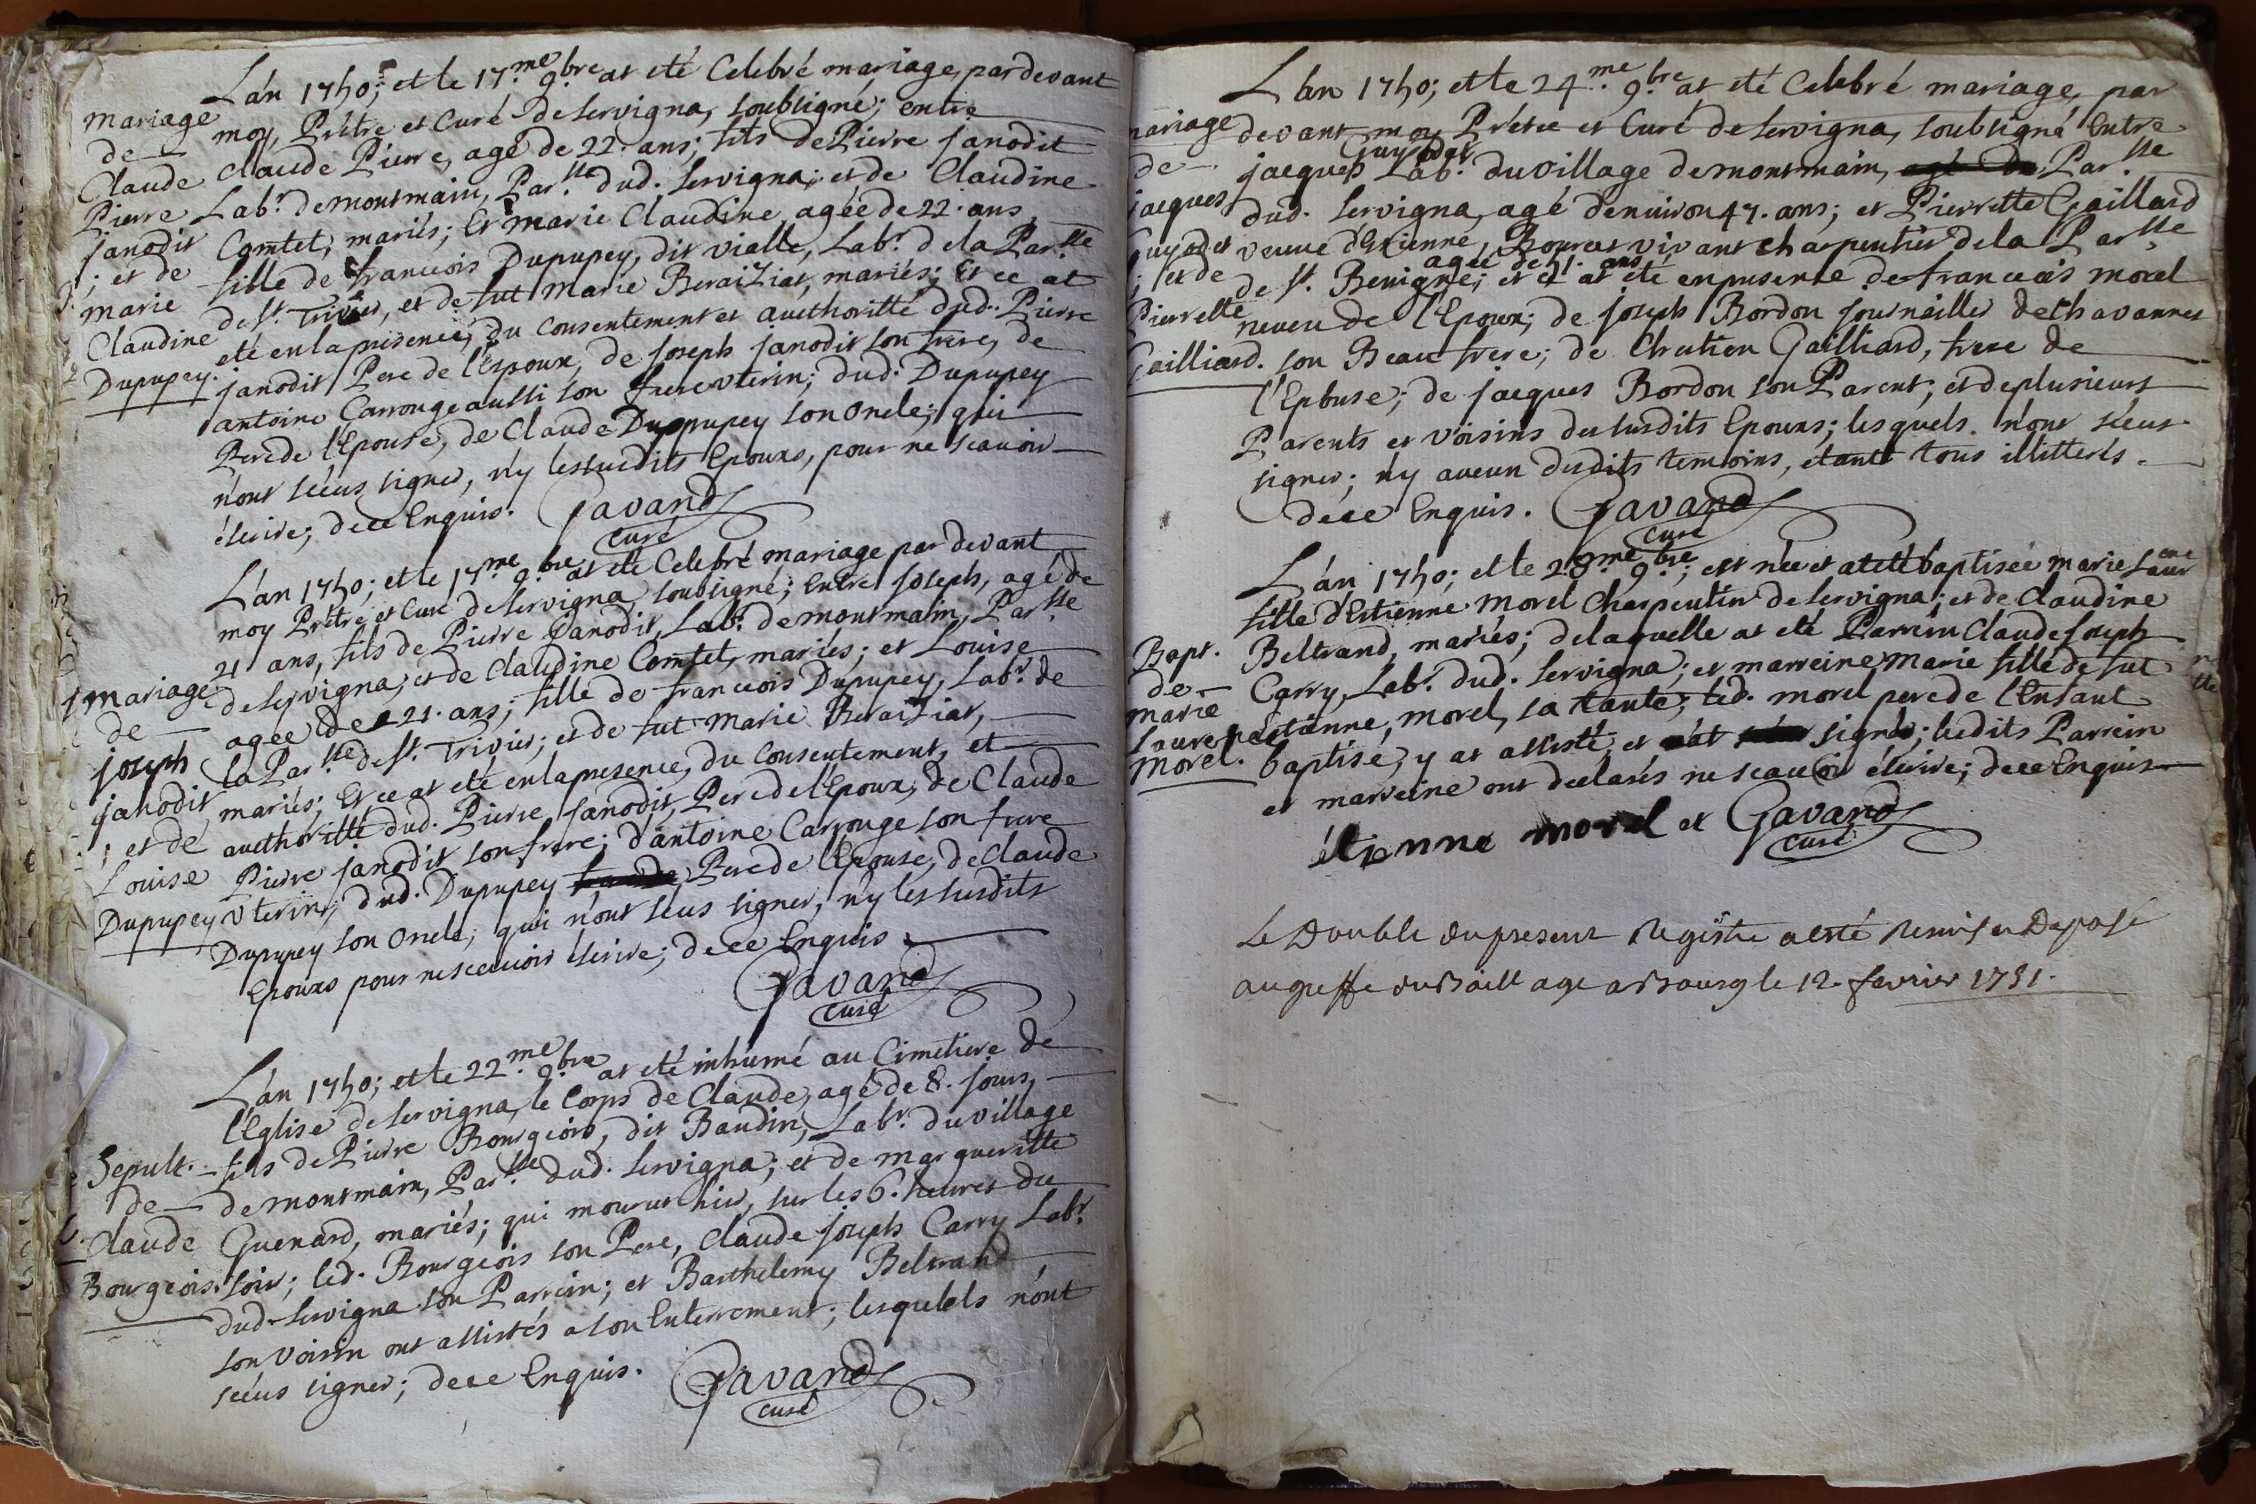 L'an 1750; et le 17.me 9.bre at eté Celebré mariage, pardevant
mariage moy, Prêtre et Curé de Servigna, soubsigné; entre
de Claude Pierre, agé de 22. ans; fils de Pierre janodit
Claude
Pierre Lab.r de montmain, Par.sse dud. Servigna; et de Claudine
janodit Comtet, mariés; Et marie Claudine, agée de 22. ans,
; et de fille de francois Dupupey, dit vialle, Lab.r de la Par.sse
marie de St. Trivier, et de fut Marie Beraiziat, mariés; Et ce at
Claudine eté en la présence, du Consentement et aucthoritté dud. Pierre
Dupupey. janodit Pere de l'Epoux, de joseph janodit son frere, de
antoine Carrouge aussi son frere vterin; dud. Dupupey
Pere de l'Epouse, de Claude Dupupey son Oncle; qui
n'ont sçeus signer, n'y les susdits Epoux, pour ne scavoir
écrire; de ce Enquis. Gavand
curé
L'an 1750; et le 17.me 9.bre at eté Celebré mariage par devant
moy Prêtre et Curé de Servigna soubsigné; Entre joseph, agé de
21 ans, fils de Pierre janodit, Lab.r de montmain, Par.sse
mariage de Servigna, et de Claudine Comtet, mariés; et Louise
de agée de 21. ans; fille de francois Dupupey, Lab.r de
joseph la Par.sse de St. Trivier; et de fut Marie Beraiziat,
janodit mariés; Et ce at eté en la presence, du Consentement, et
; et de aucthoritté dud. Pierre janodit, Pere de l'Epoux, de Claude
Louise Pierre janodit son frere; d'antoine Carrouge son frere
Dupupey vterin; dud. Dupupey Pere de l'Epouse, de Claude
Dupupey son Oncle; qui n'ont sçeus signer, n'y les susdits
Epoux pour ne scavoir écrire; de ce Enquis.
Gavand
curé
L'an 1750; et le 22.me 9.bre at eté inhumé au Cimetiere de
l'Eglise de Servigna, le Corps de Claude, agé de 8. jours,
Sepult. fils de Pierre Bourgeois, dit Baudin, Lab.r du village
de de montmain, Par.sse dud. Servigna; et de margueritte
Claude Guenard, mariés; qui mourut hier, sur les 6. heures du
Bourgeois. soir; led. Bourgeois son Pere, Claude joseph Carry Lab.r
dud. Servigna son Parrein; et Barthelemy Beltrand
son voisin ont assistés a son Enterrement; lesquels n'ont
sçeus signer; de ce Enquis. Gavand
curé
L'an 1750; et le 24.me 9.bre at eté Celebré mariage, par
mariage devant moy Prêtre et Curé de Servigna, soubsigné Entre
de jacques Guyodet Lab.r du village de montmain, Par.sse
jacques dud. Servigna, agé d'enuiron 47. ans; et Pierrette Gailliard
Guyodet veuve d'Etienne, Bourcet vivant charpentier de la Par.sse
; et de de St. Benigne; agée de 51. ans et ce at eté en presence de francois morel
Pierrette neveu de l'Epoux; de joseph Bordon journailler de Chavannes
Gailliard. son Beau frere; de Chretien Gailliard, frere de
l'Epouse; de jacques Bordon son Parent; et de plusieurs
Parents et voisins des susdits Epoux; lesquels n'ont sçeus
signer; n'y aucun desdits temoins, étants tous illitterés.
de ce Enquis. Gavand
curé
L'an 1750; et le 28.me 9.bre; est née et at eté baptisée marie Laurence
fille d'Estienne Morel Charpentier de Servigna; et de Claudine
Bapt. Beltrand, mariés; de laquelle at eté Parrein Claude joseph
de Carry, Lab.r dud. Servigna; et marreine, marie fille de fut
marie Estienne, morel, sa tante; led. morel pere de l'Enfant
Laurence
morel. baptisé, y at assisté, et signé; lesdits Parrein
et marreine ont declarés ne scavoir écrire; de ce Enquis
étienne morel et Gavand
curé
Le Double du present Registre a esté Remis et Deposé
au greffe du Bailliage a Bourg le 12. fevrier 1751.